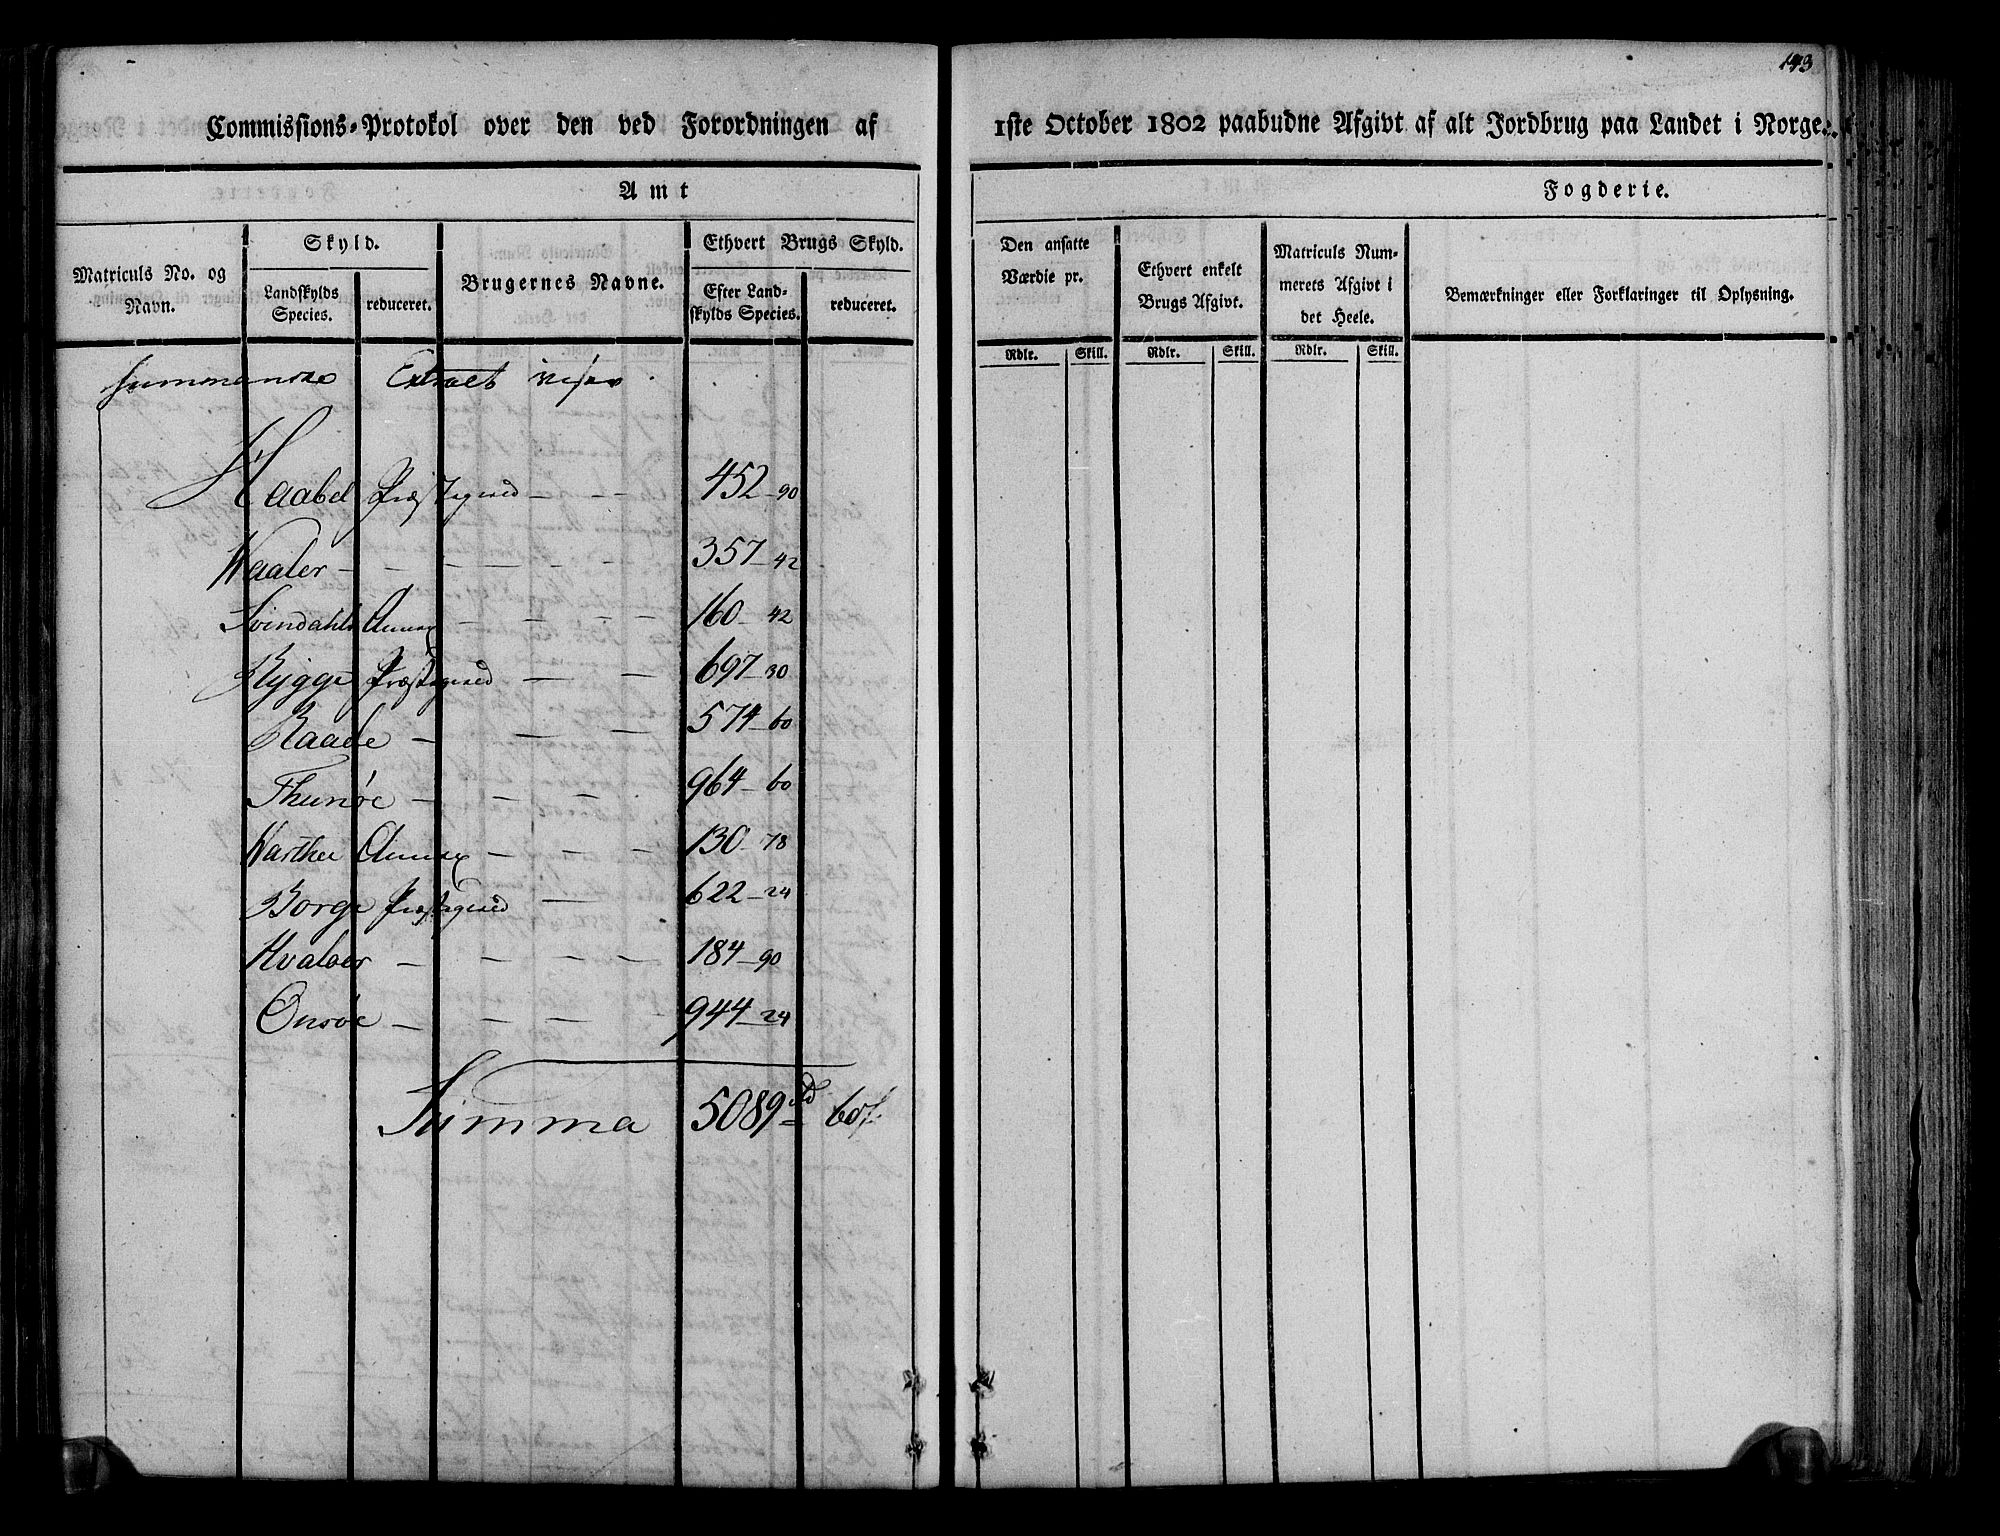 143
Commissions-Protokol over den ved Forordningen af 1ste October 1802 paabudne Afgivt af alt Jordbrug paa Landet i Norge.
Amt Fogderie.
Matriculs No. og Navn.
Skyld.
Landskylds Species.
reduceret.
Brugernes Navne.
Ethvert Brugs Skyld.
Efter Landskylds Species.
reduceret.
Den ansatte Værdie pr.
Ethvert enkelt Brugs Afgivt.
Matriculs Nummerets Afgivt i det Heele.
Bemærkninger eller Forklaringer til Oplysning.
Rdlr. Skill. Rdlr. Skill. Rdlr. Skill.
Extract viser
Haabel Præstegield - - - 452 - 90
Waaler - - - - - - 357 - 42
Svindahls Annex - - - - 160 - 42
Rygge Præstegield - - 697 - 30
Raade - - - 574 - 60
Thunøe - - - 964 - 60
Warthei Annex - - - 130 - 78
Borge Præstegield - 622 - 24
Hvaløer - - - - - 184 - 90
Onsøe - - - - 944 - 24
Summa 5089 rd 60 s.